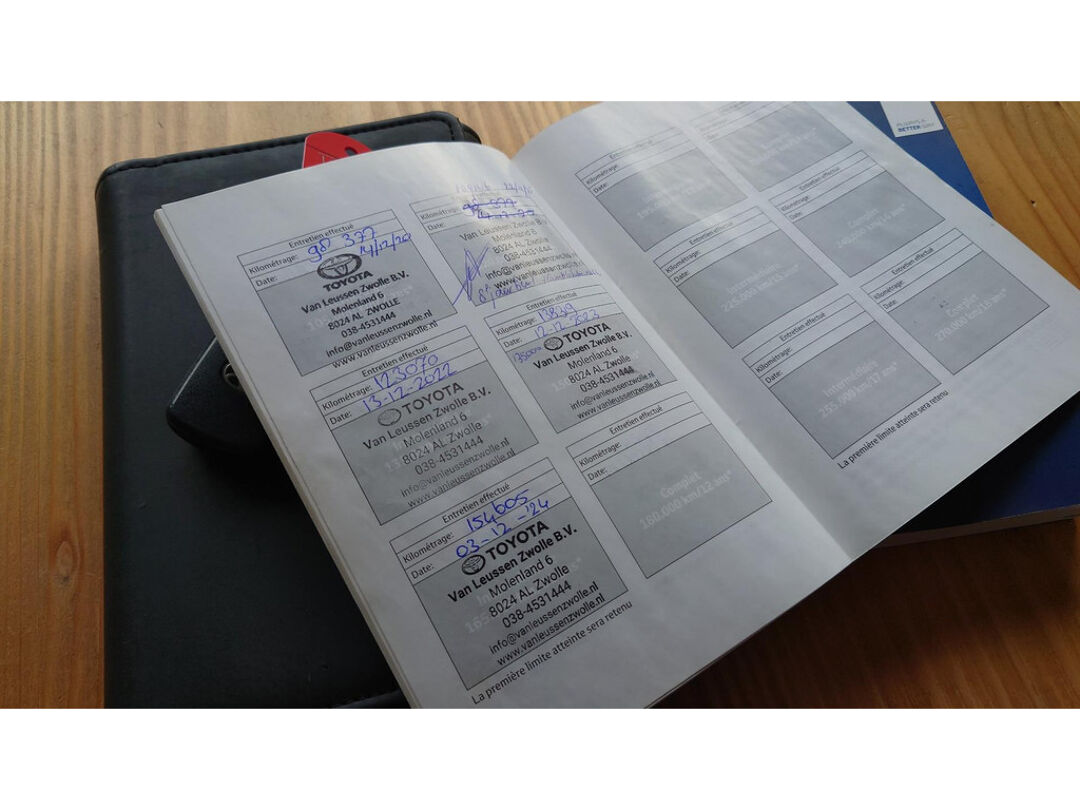 Entretien effectué
Kilométrage: 98 377
Date: 14/12/20
TOYOTA
Van Leussen Zwolle B.V.
Molenland 6
8024 AL ZWOLLE
038-4531444
info@vanleussenzwolle.nl
www.vanleussenzwolle.nl
Entretien effectué
Kilométrage: 123070
Date: 13-12-2022
TOYOTA
Van Leussen Zwolle B.V.
Molenland 6
8024 AL Zwolle
038-4531444
info@vanleussenzwolle.nl
www.vanleussenzwolle.nl
Entretien effectué
Kilométrage: 154605
Date: 03-12-'24
TOYOTA
Van Leussen Zwolle B.V.
Molenland 6
8024 AL Zwolle
038-4531444
info@vanleussenzwolle.nl
www.vanleussenzwolle.nl
La première limite atteinte sera retenu
Kilométrage: 98 377
Van Leussen Zwolle B.
Molenland 6
8024 AL Zwolle
038-4531444
info@vanleussenzwolle.nl
www.vanleussenzwolle.nl
Entretien effectué
Kilométrage:
Date: 12-12-2023
TOYOTA
Van Leussen Zwolle B.V.
Molenland 6
8024 AL Zwolle
038-4531444
info@vanleussenzwolle.nl
www.vanleussenzwolle.nl
Entretien effectué
Kilométrage:
Date:
Complet
180.000 km/12 ans*
Entretien effectué
Kilométrage:
Date:
Entretien effectué
Kilométrage:
Date:
Intermédiaire
Entretien effectué
Kilométrage:
Date:
Intermédiaire
255.000 km/17 ans*
Entretien effectué
Kilométrage:
Date:
Entretien effectué
Kilométrage:
Date:
Complet
270.000 km/18 ans*
La première limite atteinte sera retenu
ALWAYS A
BETTER WAY